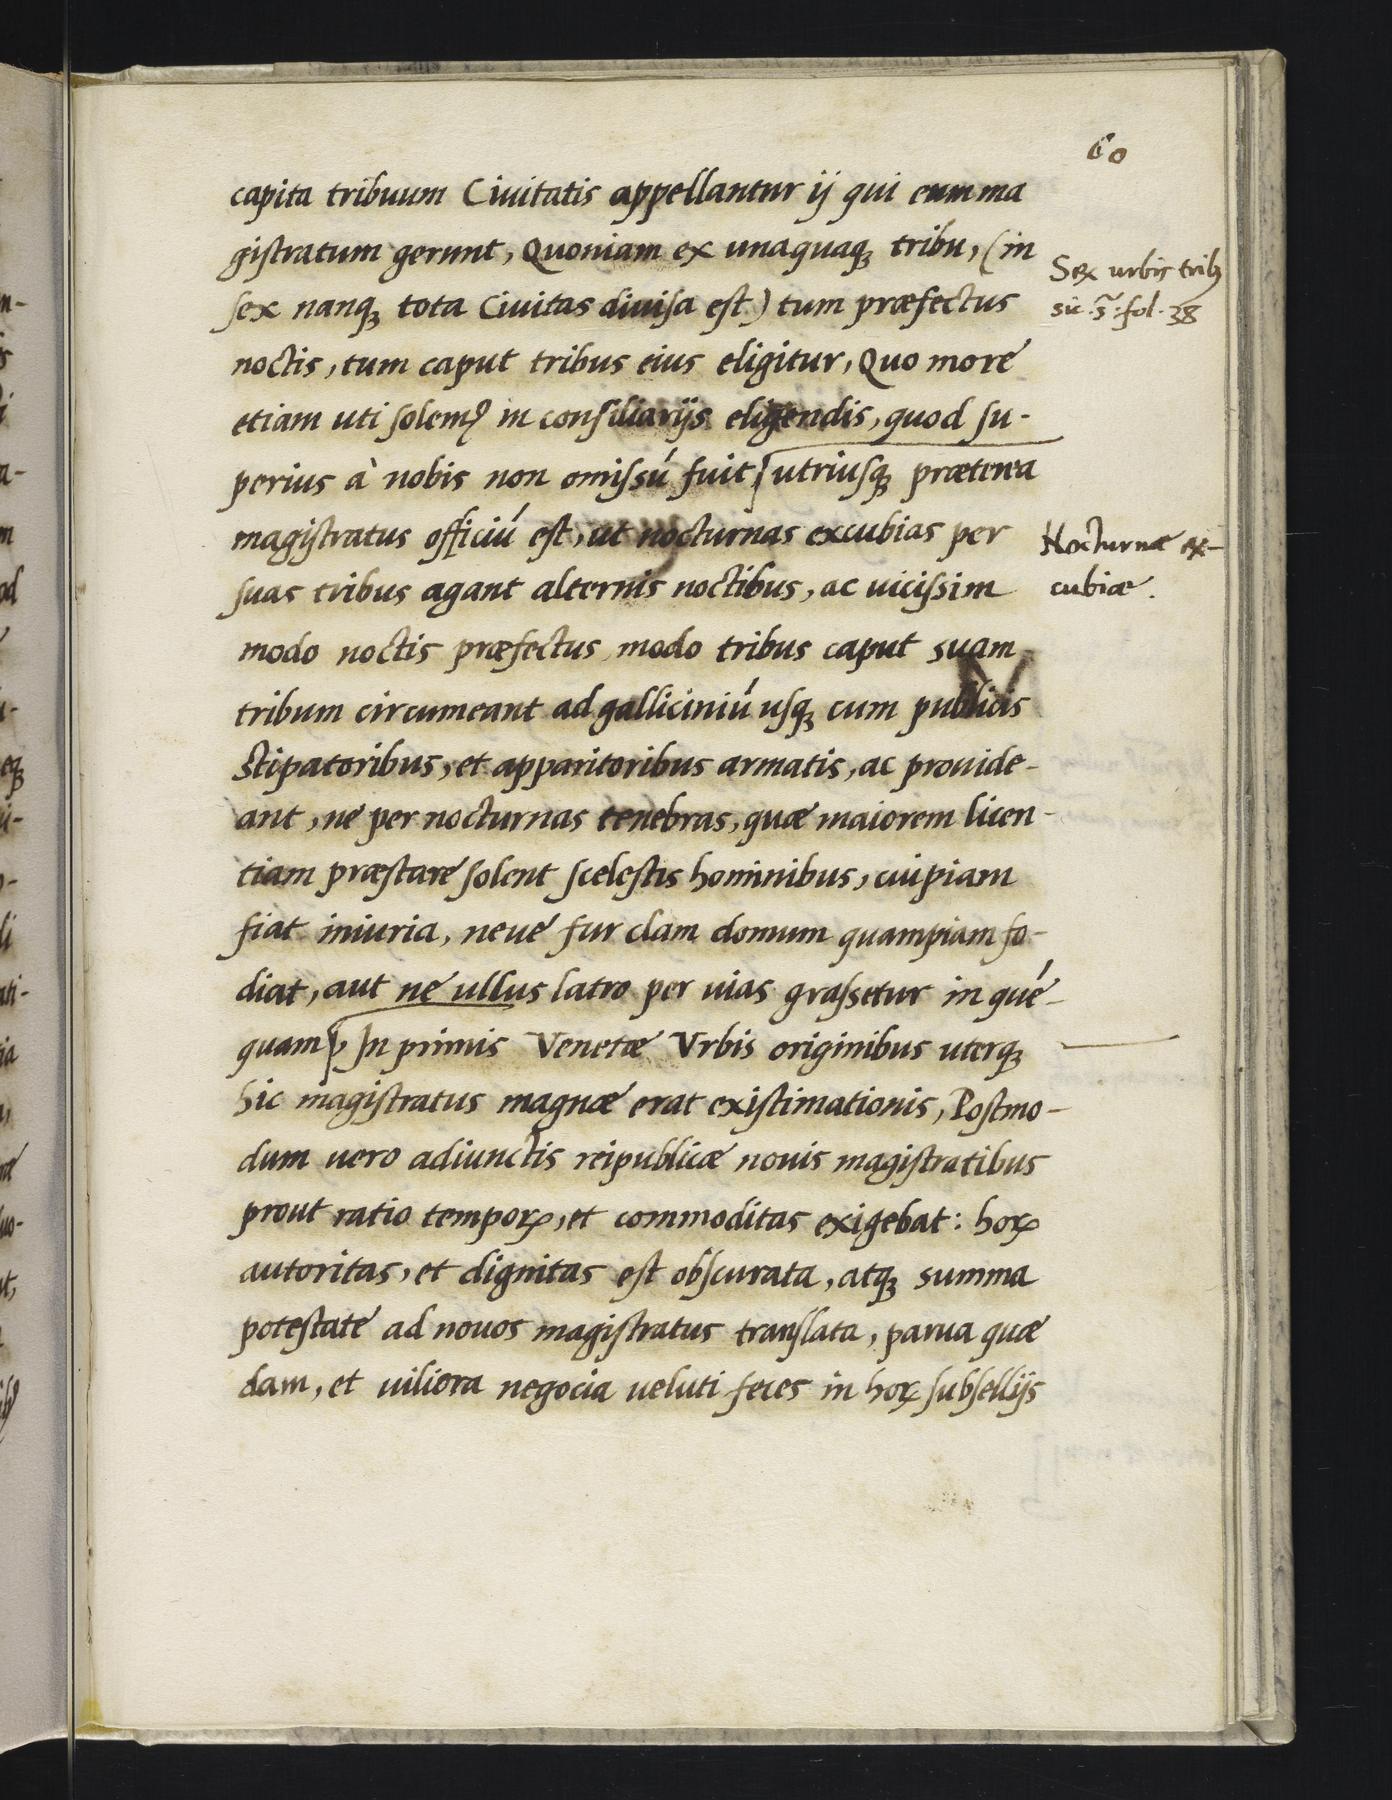 60
capita tribuum Ciuitatis appellantur ij qui eum ma
giſtratum gerunt, Quoniam ex unaquaqꝫ tribu, (in
ſex nanqꝫ tota Ciuitas diuiſa eſt) tum præfectus
noctis, tum caput tribus eius eligitur, Quo more
etiam uti ſolemꝰ in conſiliarijs eligendis, quod ſu-
perius à nobis non omiſsú fuit [utriuſqꝫ præterea
magiſtratus officiú eſt, ut nocturnas excubias per
ſuas tribus agant alternis noctibus, ac uiciſsim
modo noctis præfectus, modo tribus caput suam
tribum circumeant ad galliciniú uſqꝫ cum publicis
Stipatoribus, et apparitoribus armatis, ac prouide-
ant, ne per nocturnas tenebras, quæ maiorem licen-
tiam præſtare ſolent ſceleſtis hominibus, cuipiam
fiat iniuria, neue fur clam domum quampiam fo-
diat, aut ne ullus latro per uias graſsetur in qué-
quam[, In primis Venetæ Vrbis originibus uterqꝫ
hic magiſtratus magnæ erat exiſtimationis, Poſtmo-
dum uero adiunctis reipublicæ nouis magiſtratibus
prout ratio temporꝝ, et commoditas exigebat: horꝝ
autoritas, et dignitas eſt obſcurata, atqꝫ summa
poteſtate ad nouos magiſtratus tranſlata, parua quæ
dam, et uiliora negocia ueluti feces in horꝝ ſubſellijs
Sex urbis tribꝫ
sic .s̃: fol. 38
Nocturnæ ex-
cubiæ.